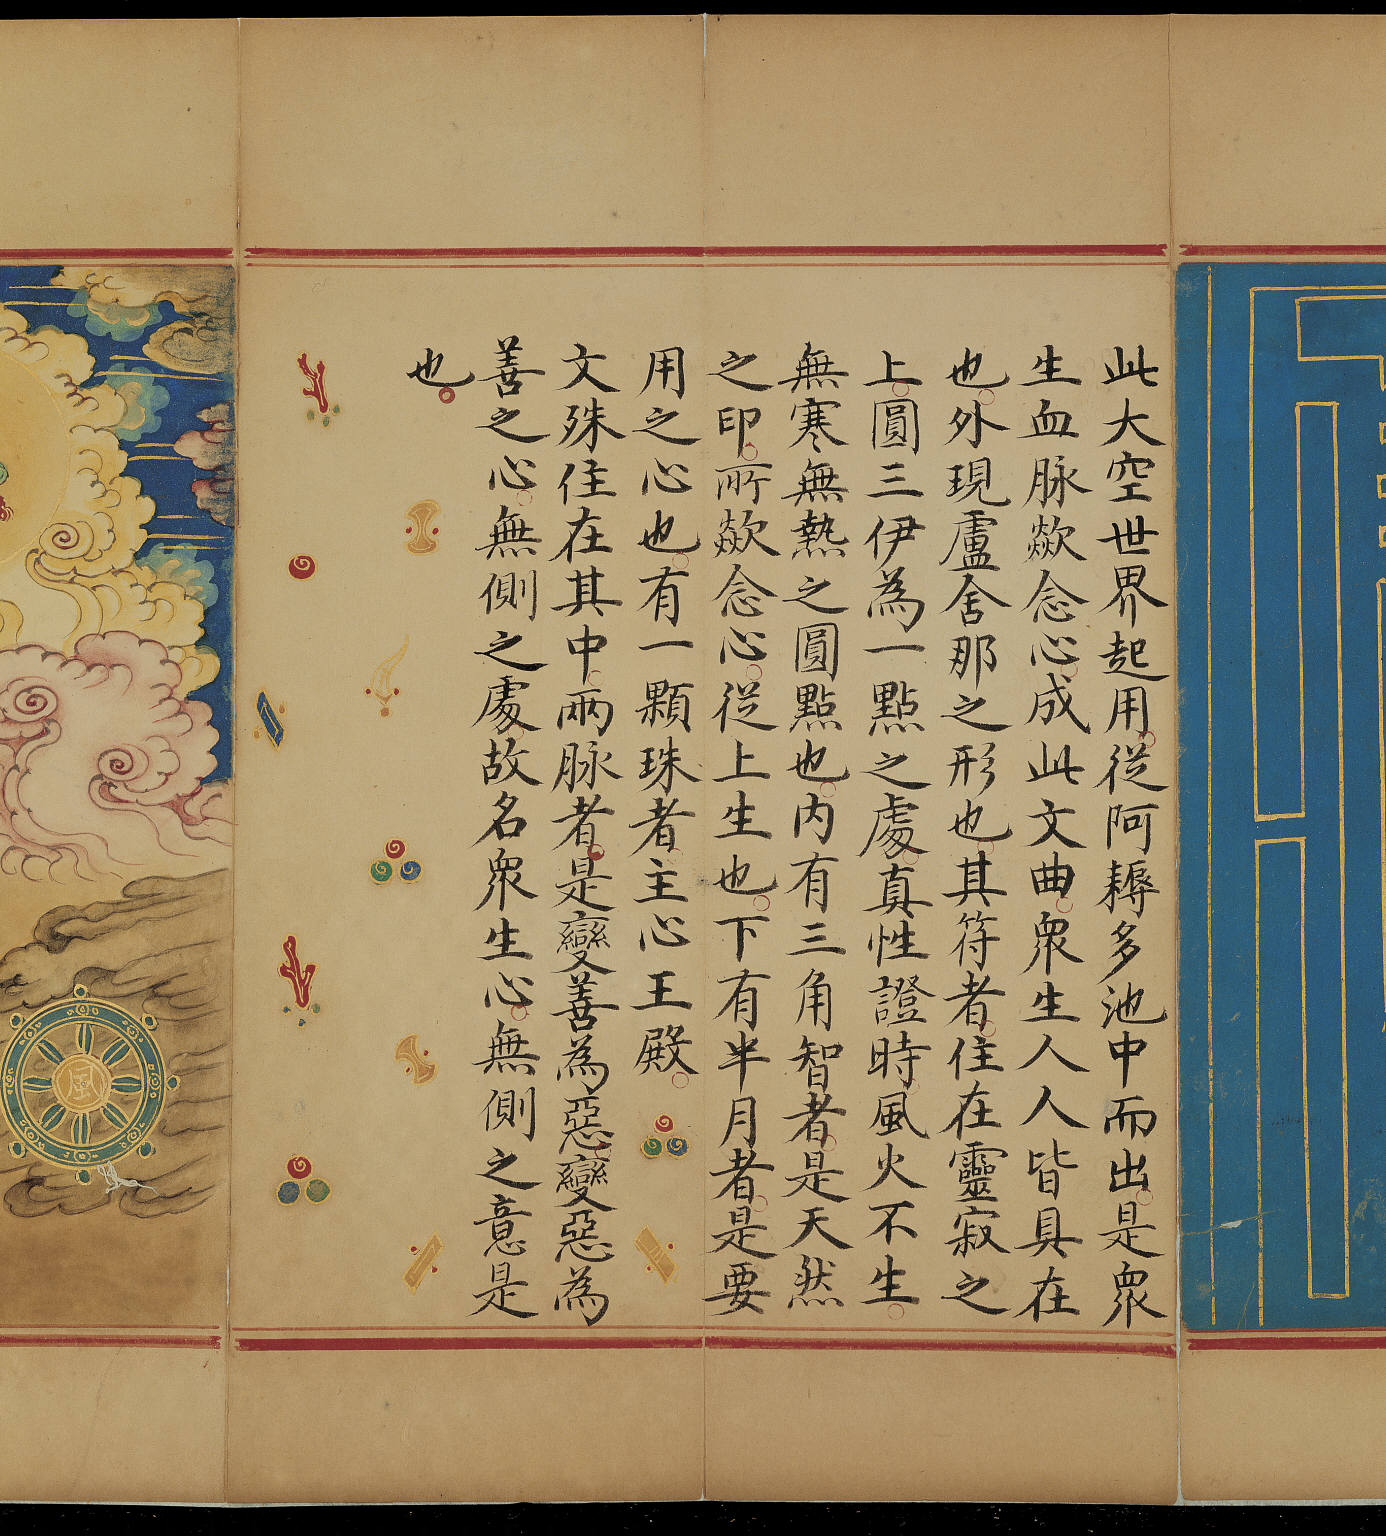 此大空世界起用從阿耨多池中而出是衆
生血脉歘念心成此文曲衆生人人皆具在
也外現盧舍那之形也其符者住在靈寂之
上圓三伊為一點之處真性證時風火不生
無寒無熱之圓點也内有三角智者是天然
之印所歘念心從上生也下有半月者是要
用之心也有一顆珠者主心王殿
文殊住在其中兩脉者是變善為惡變惡為
善之心無側之處故名衆生心無側之意是
也
風